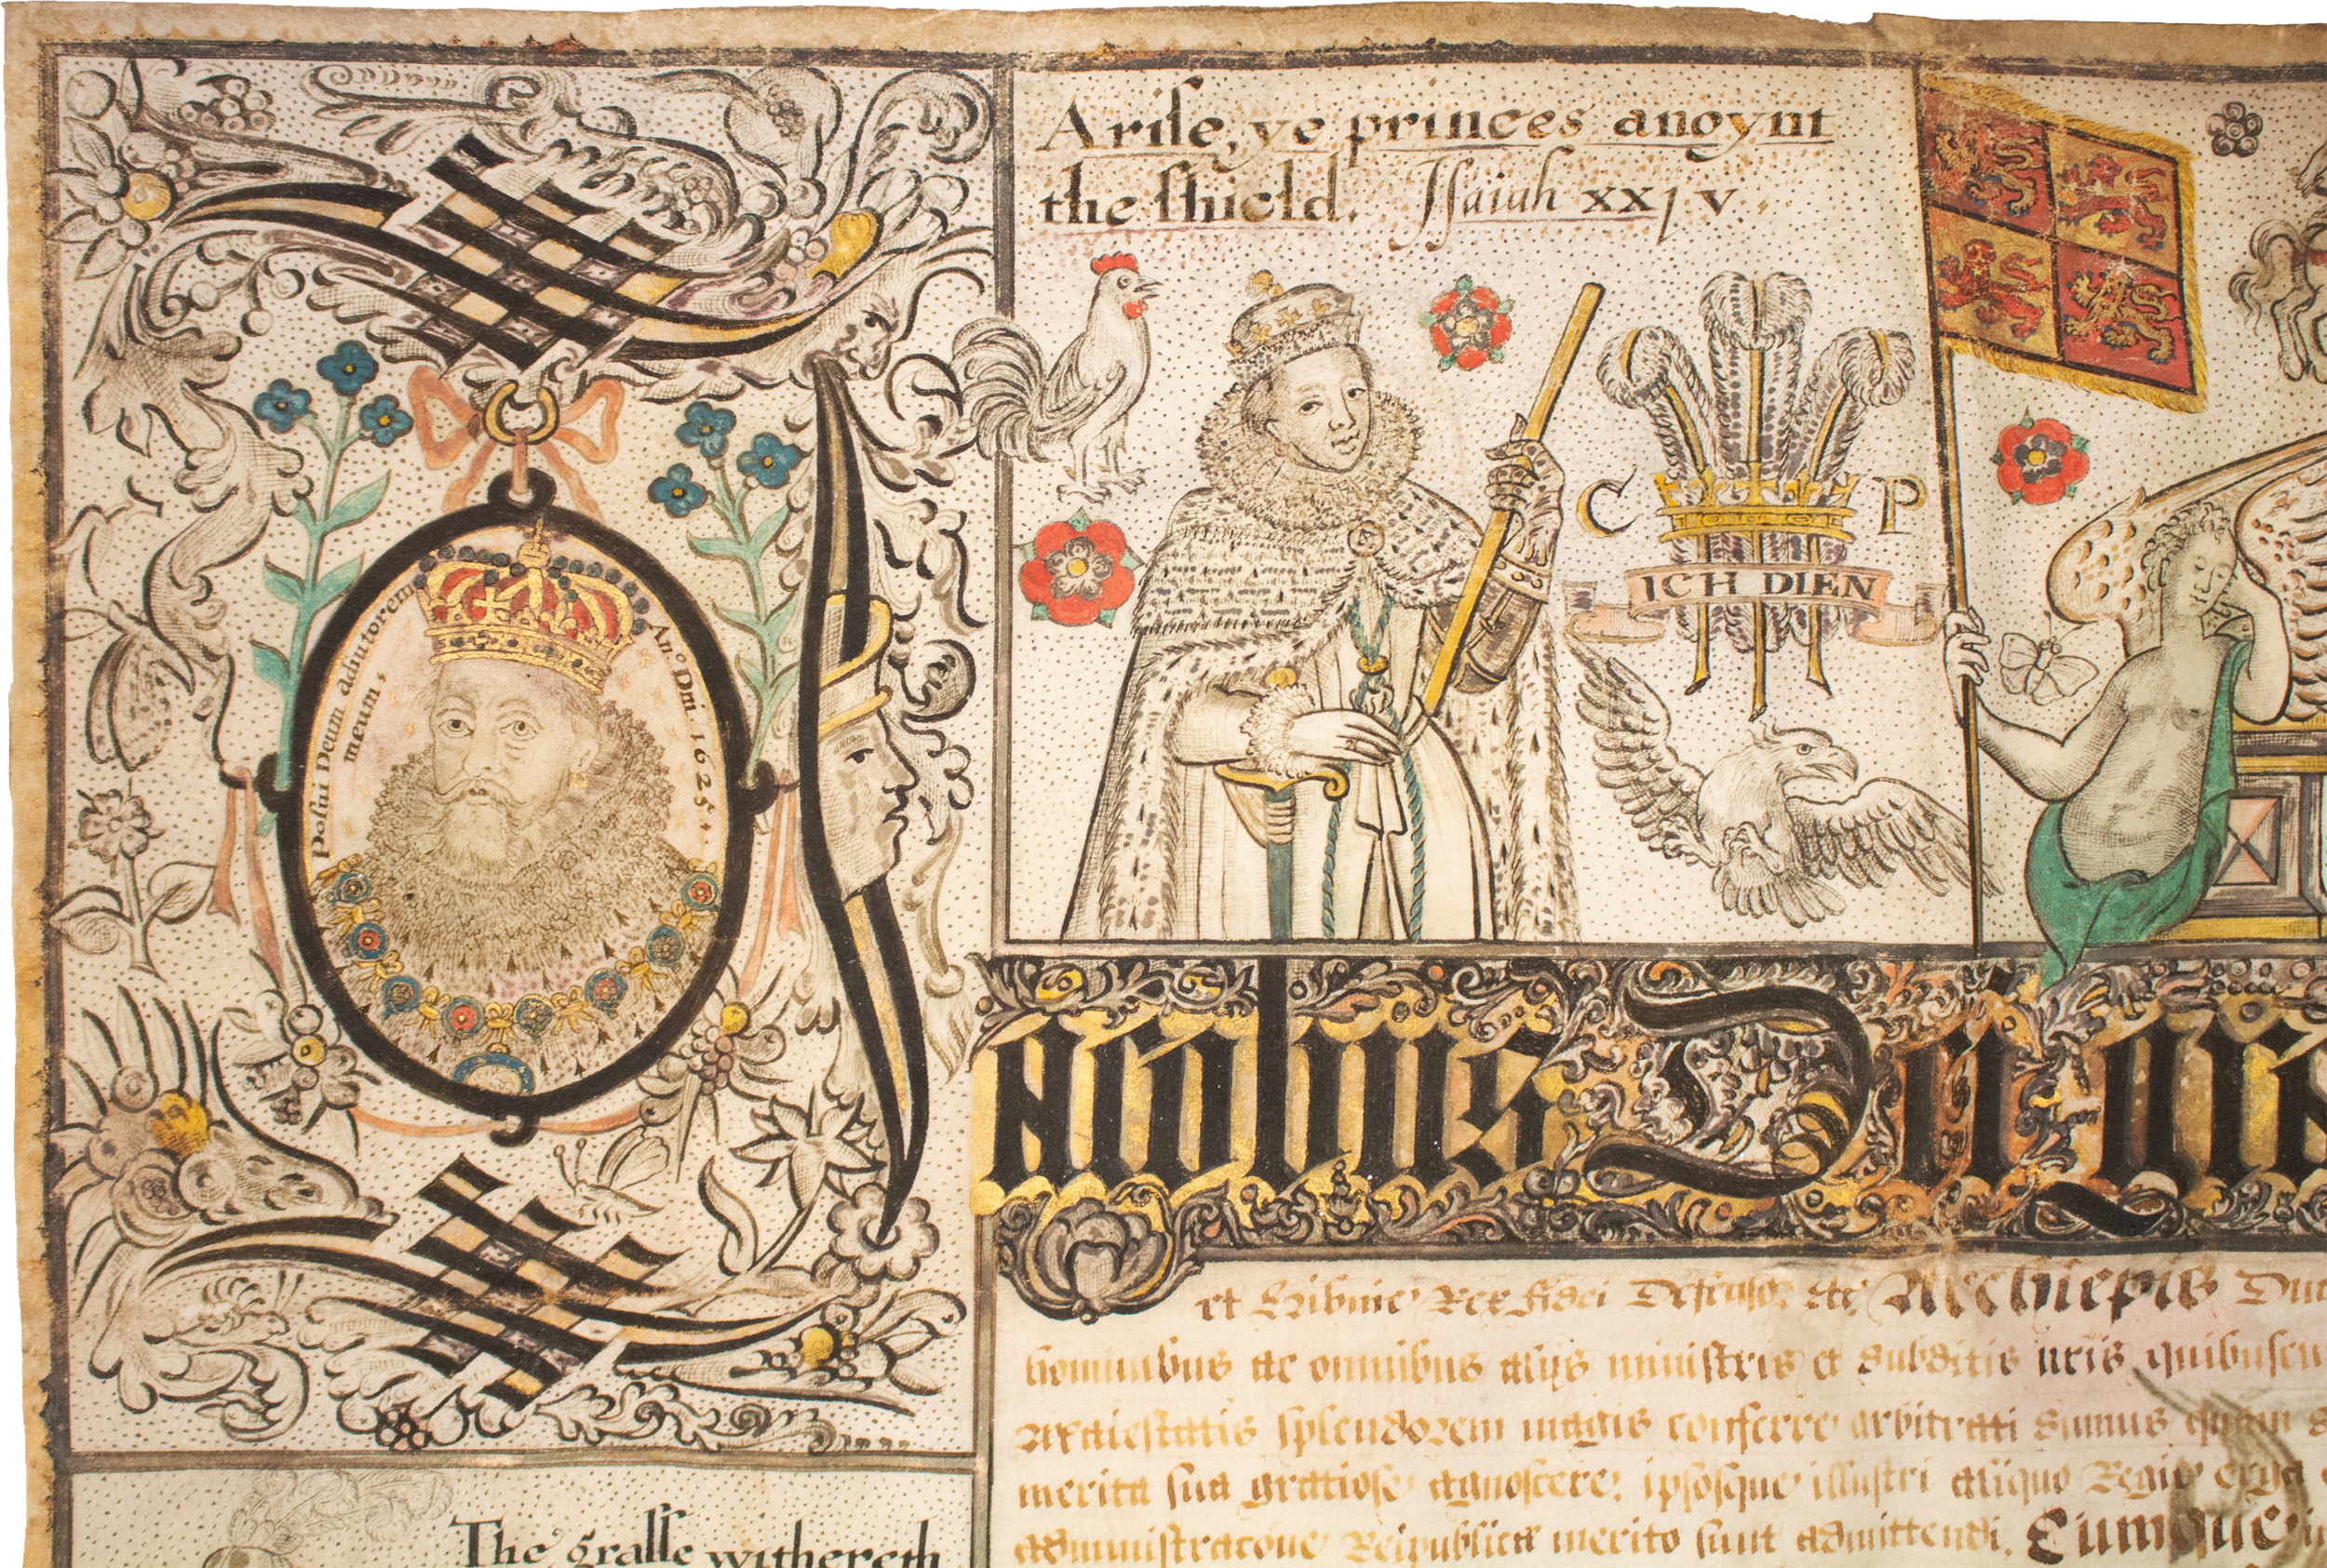 Arise, ye princes anoynt
the shield. Isaiah xxjv.
C P
ICH DIEN
Posui Deum adiutorem
meum,
An° Dni 1625.
Jacobus Dei gra
et Hibnie Rex fidei Defensor &c Archiepis Duc
hominibus ac omnibus alijs ministris et subditis nris quibuscu
Maiestatis splendorem magis conferre arbitrati sumus quam
merita sua gratiose agnoscere, ipsosque illustri aliquo Regie erga
administracone Reipublice merito sunt admittendi. Cumque
The grasse withereth